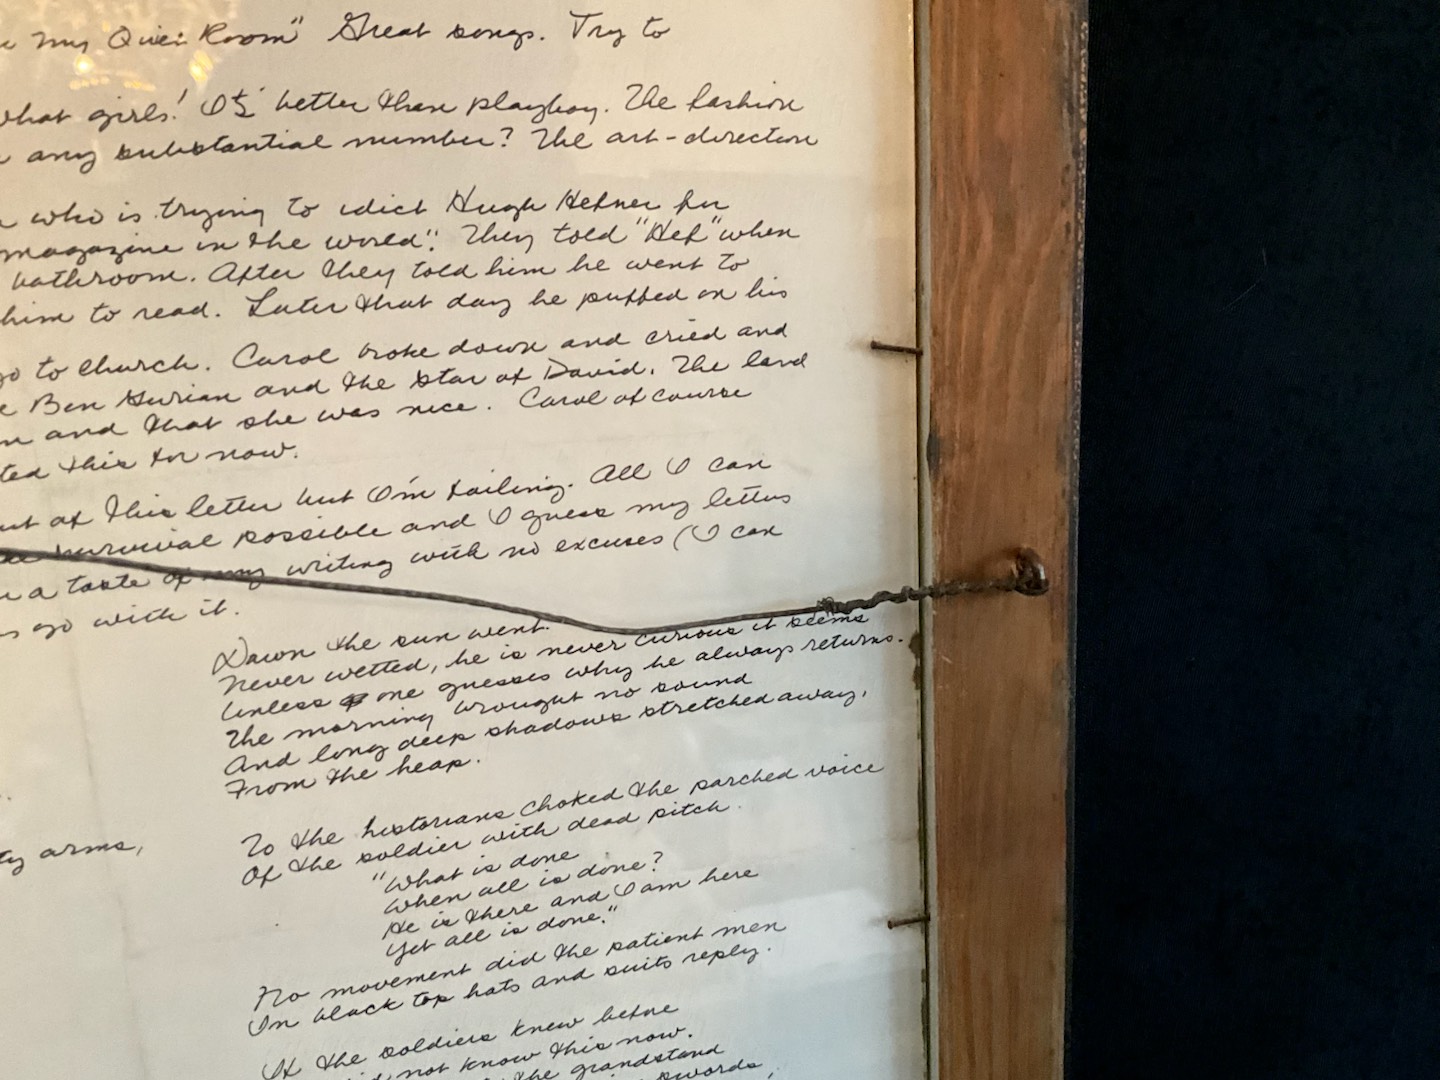 my Quiet Room" Great songs. Try to
what girls! It's better than playboy. The fashion
any substantial number? The art-direction
who is trying to Hugh Hefner for
magazine in the world". They told "Hef" when
bathroom. After they told him he went to
him to read. Later that day he puffed on his
go to church. Carol broke down and cried and
Ben Gurian and the star of David. The land
and that she was nice. Carol of course
this for now.
of this letter but I'm failing. All I can
survival possible and I guess my letters
a taste of my writing with no excuses (I can
go with it.
Down the sun went.
Never wetted, he is never curious it seems
Unless one guesses why he always returns.
The morning brought no sound
And long deep shadows stretched away,
From the heap.
arms,
To the historians choked the parched voice
Of the soldier with dead pitch.
"What is done
When all is done?
He is there and I am here
Yet all is done."
No movement did the patient men
In black top hats and suits reply.
If the soldiers knew before
not know this now.
the grandstand
swords,